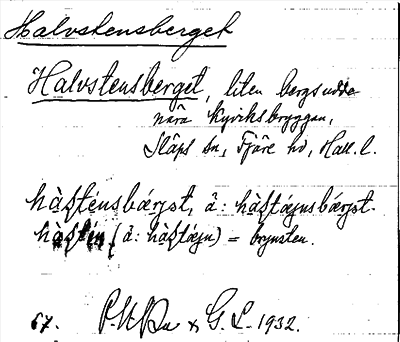 Halvstensberget
Halvstensberget, liten bergsudde
nära Kyviksbryggan,
Släps sn, Fjäre hd, Hall. l.
hàʃténsbærjət, ä: hàʃtæjnsbærjət.
hàʃtin (ä: hàʃtæjn) = brynsten.
67. & G. L. 1932.